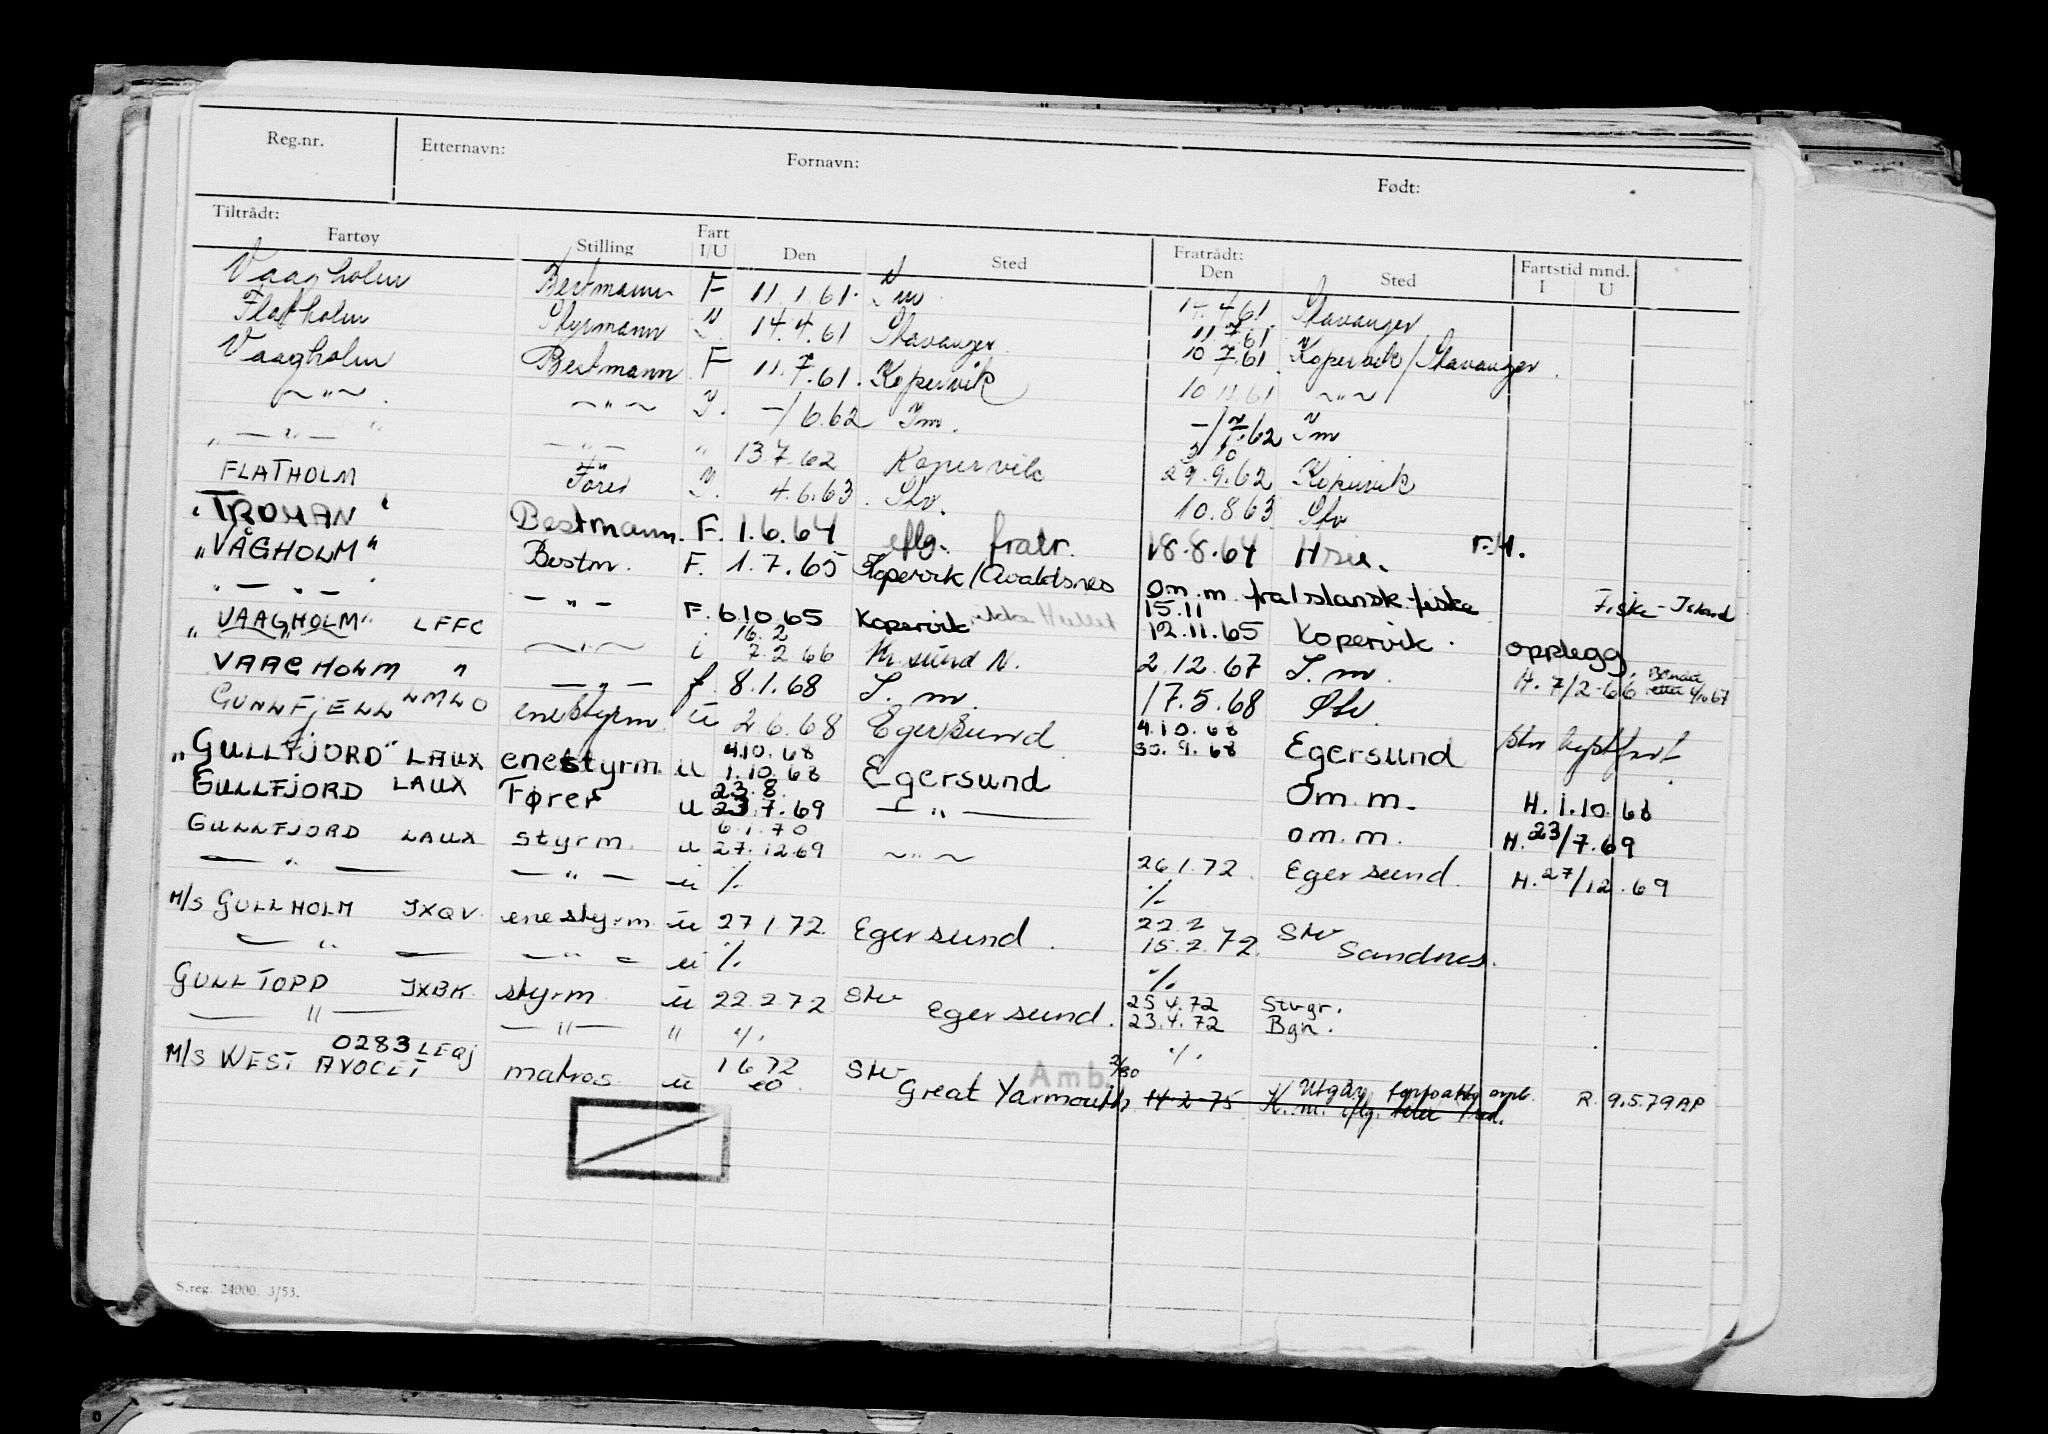 Reg.nr. Etternavn: Fornavn: Født:
Tiltrådt: Fratrådt: Fartstid mnd.
Fartøy Stilling Fart I/U Den Sted Den Sted I U
Vaagholm Bestmann F 11.1.61. Im 14.4.61 Stavanger
Flatholm Styrmann 14.4.61 Stavanger 11.7.61
Vaagholm Bestmann F 11.7.61. Kopervik 10.7.61 Kopervik/Stavanger.
~"~ ~"~ I. -/6.62 Im. 10.11.61 ~"~
" — " — " — " — " 13.7.62 Kopervik -/7.62 Im
FLATHOLM Fører I. 4.6.63. Stv. 29.9.62 Kopervik
"TROMAN" Bestmann. F. 1.6.64 eflg. fratr. 10.8.63 Stv
"VÅGHOLM" Bestm. F. 1.7.65 Kopervik/Avaldsnes 18.8.64 F.H.
" — " — " — " — F. 6.10.65 Kopervik, om.m. fra Islandsk.fiske Fiske-Island
15.11
"VAAGHOLM" LFFC ~"~ i 16.2 7.2.66 Kr.sund N. 12.11.65 Kopervik. opplegg.
VAAGHOLM " — " — f. 8.1.68 I.m. 2.12.67 I.m. H. 7/2-66
GULLFJELL LMLO enestyrm. u 2.6.68 Egersund 17.5.68
"GULLFJORD" LAUX enestyrm. u 4.10.68 1.10.68 Egersund 4.10.68 30.9.68 Egersund
GULLFJORD LAUX Fører u 23.8. 23.7.69 — " — Om.m. H. 1.10.68
GULLFJORD LAUX styrm. u 6.1.70 27.12.69 ~"~ om.m. H. 23/7.69
— " — — " — u ./. 26.1.72. Egersund. H. 27/12.69
M/S GULLHOLM JXQV. enestyrm. u 27.1.72. Egersund. ./.
22.2 15.2.72. Stv Sandnes.
— " — — " — u ./.
GULLTOPP JXBK. styrm. u 22.2.72 Stv Egersund. ./.
25.4.72 Stvgr.
23.4.72 Bgn.
— " — — " — " ./. ./.
M/S WEST AVOCET 0283 LEQJ matros u 1.6.72 Stv Great Yarmouth Amb. 2/80 14-2-75 K.m. iflg. R. 9.5.79 AP
S.reg. 24000. 3/53.